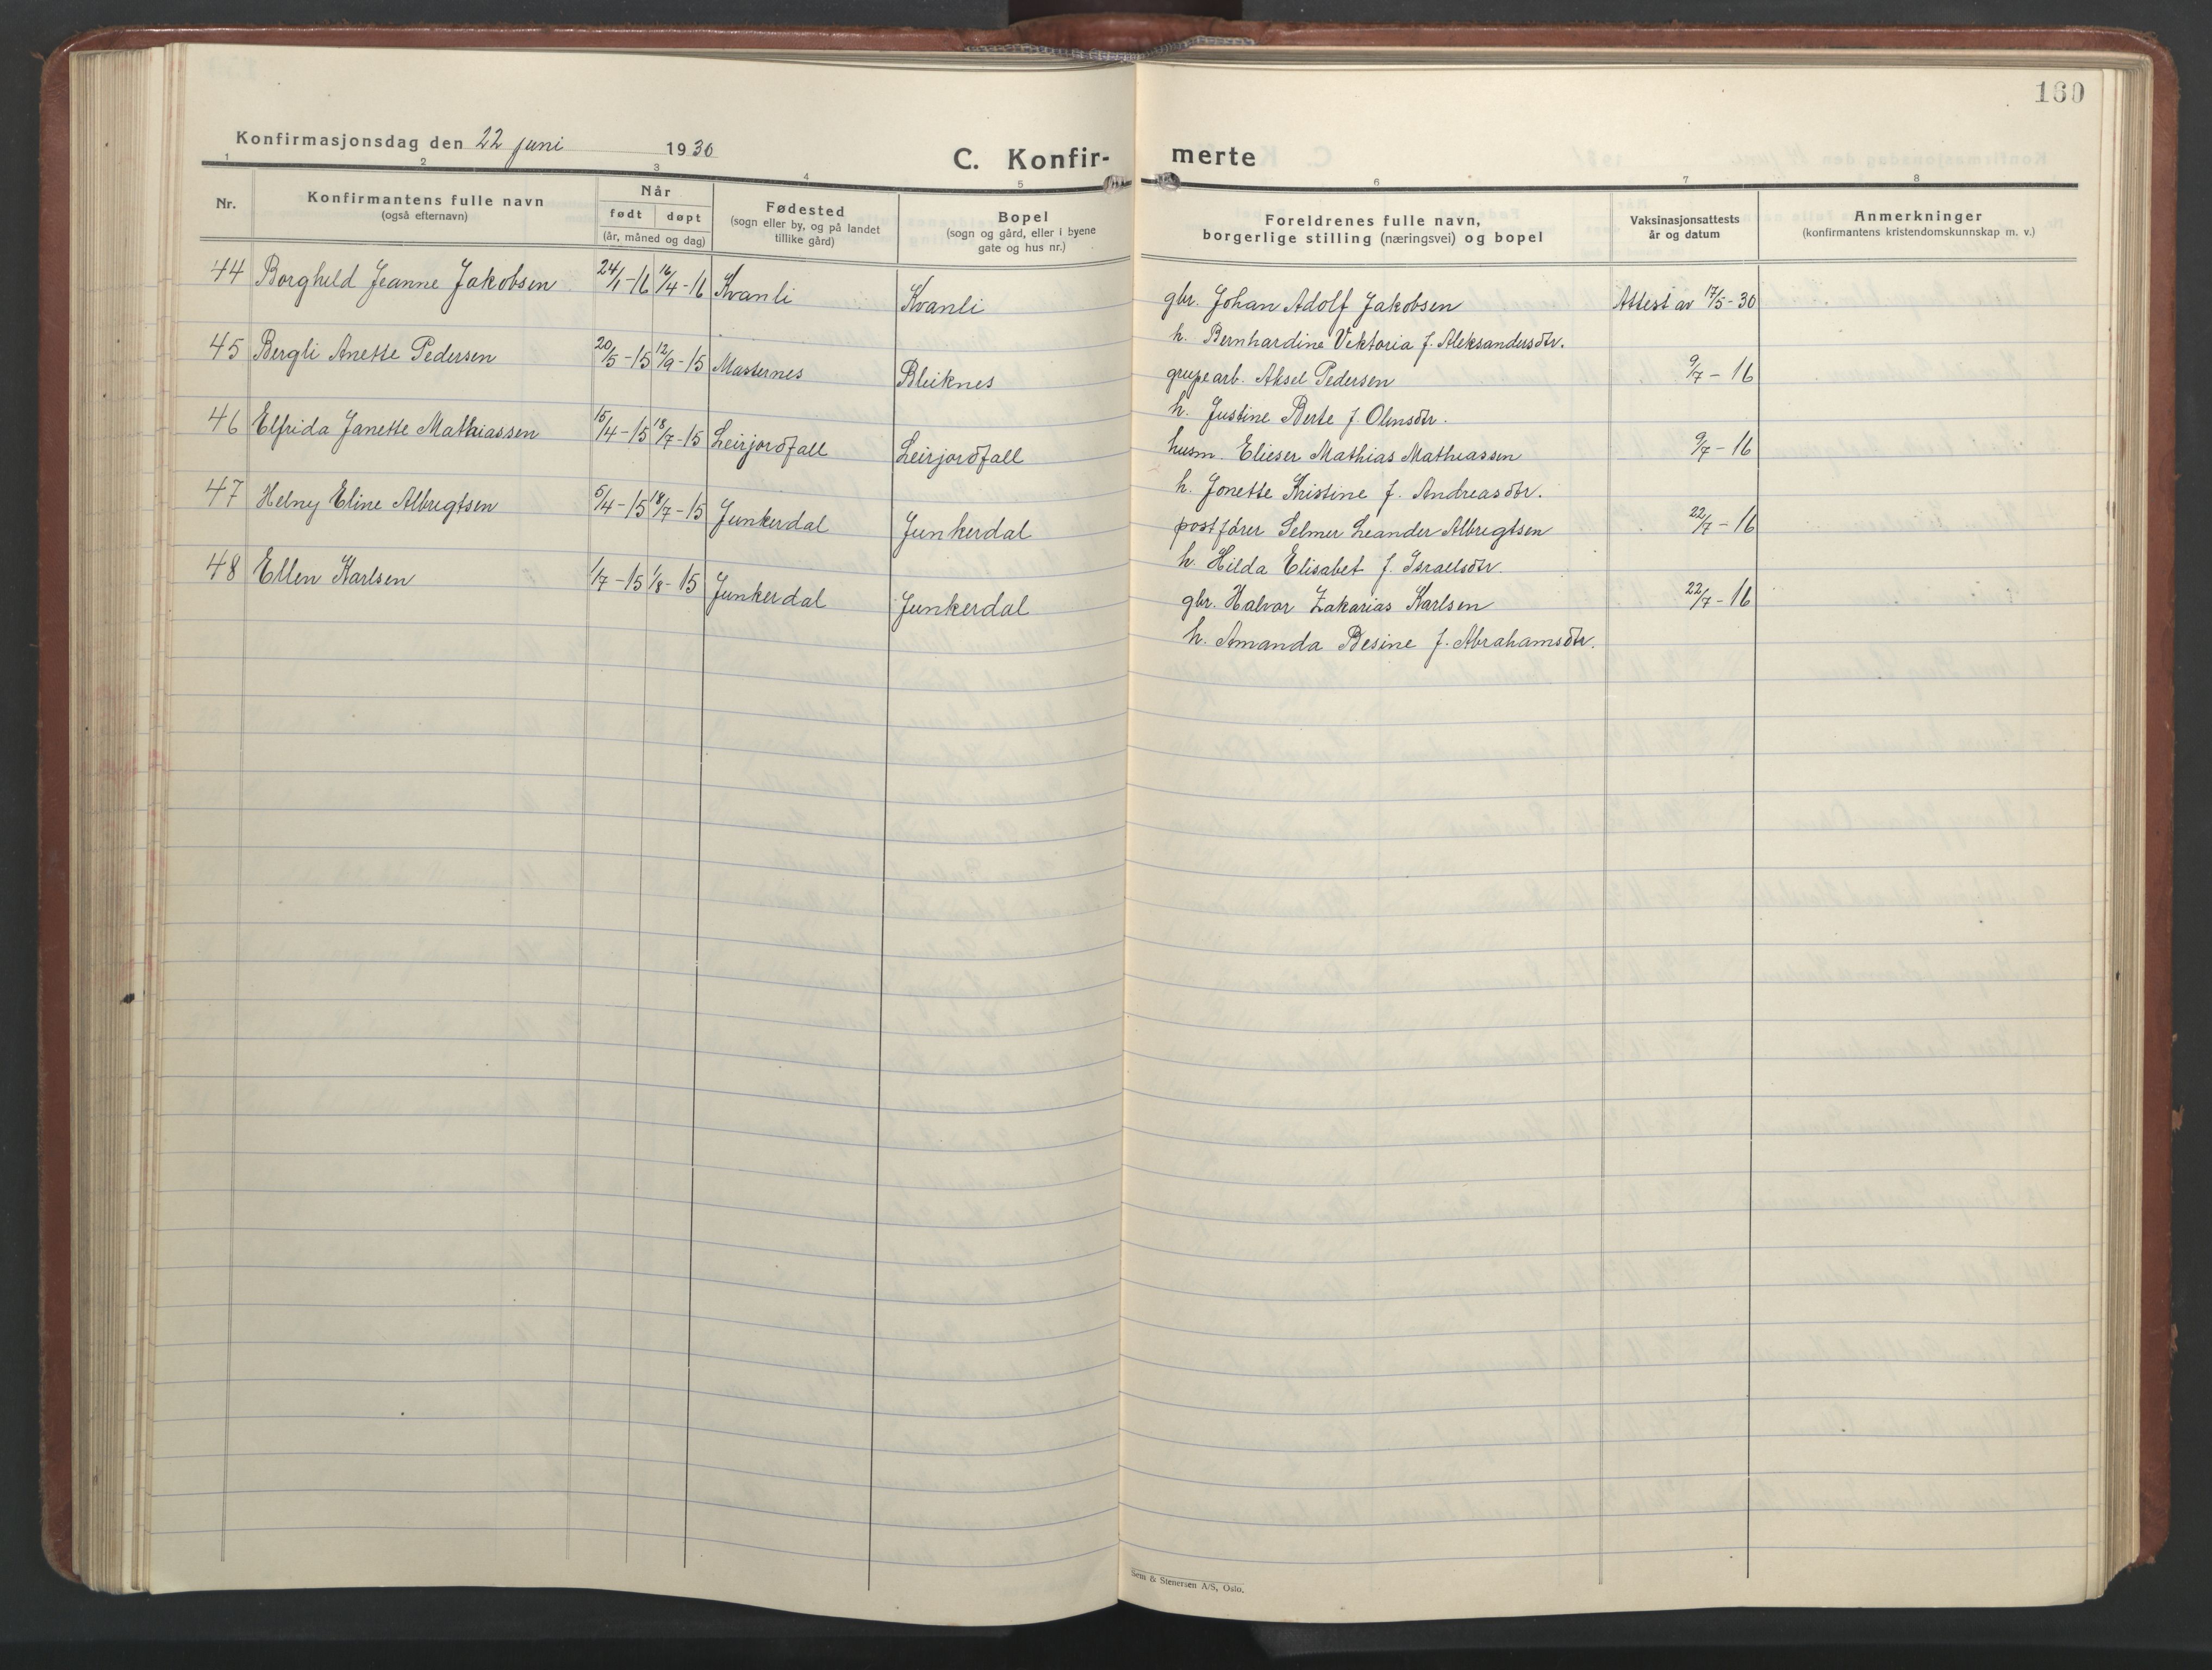 160
Konfirmasjonsdag den 22 juni 1930
C. Konfir-merte
1 2 3 4 5 6 7 8
Nr. Konfirmantens fulle navn (også efternavn) Når født døpt (år, måned og dag) Fødested (sogn eller by, og på landet tillike gård) Bopel (sogn og gård, eller i byene gate og hus nr.) Foreldrenes fulle navn, borgerlige stilling (næringsvei) og bopel Vaksinasjonsattests år og datum Anmerkninger (konfirmantens kristendomskunnskap m. v.)
44 Borghild Jeanne Jakobsen 24/1-16 16/4-16 Kvanli Kvanli gbr. Johan Adolf Jakobsen Attest av 17/5-30
h. Bernhardine Viktoria f. Aleksandersdtr.
45 Bergli Anette Pedersen 20/5-15 12/9-15 Masternes Bleiknes grupearb. Aksel Pedersen 9/7-16
h. Justine Berte f. Olensdtr.
46 Elfrida Janette Mathiassen 15/4-15 18/7-15 Leirjordfall Leirjordfall husm. Elieser Mathias Mathiassen 9/7-16
h. Jonette Kristine f. Andreasdtr.
47 Helny Eline Albregtsen 5/4-15 18/7-15 Junkerdal Junkerdal postfører Selmer Leander Albregtsen 22/7-16
h. Hilda Elisabet f. Israelsdtr.
48 Ellen Karlsen 1/7-15 1/8-15 Junkerdal Junkerdal gbr. Halvor Zakarias Karlsen 22/7-16
h. Amanda Besine f. Abrahamsdtr.
Sem & Stenersen A/S, Oslo.